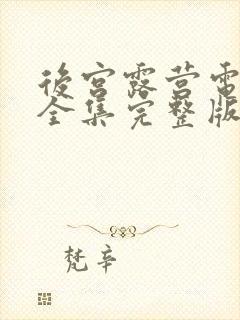 後宮露营電
全集完整版
梵辛